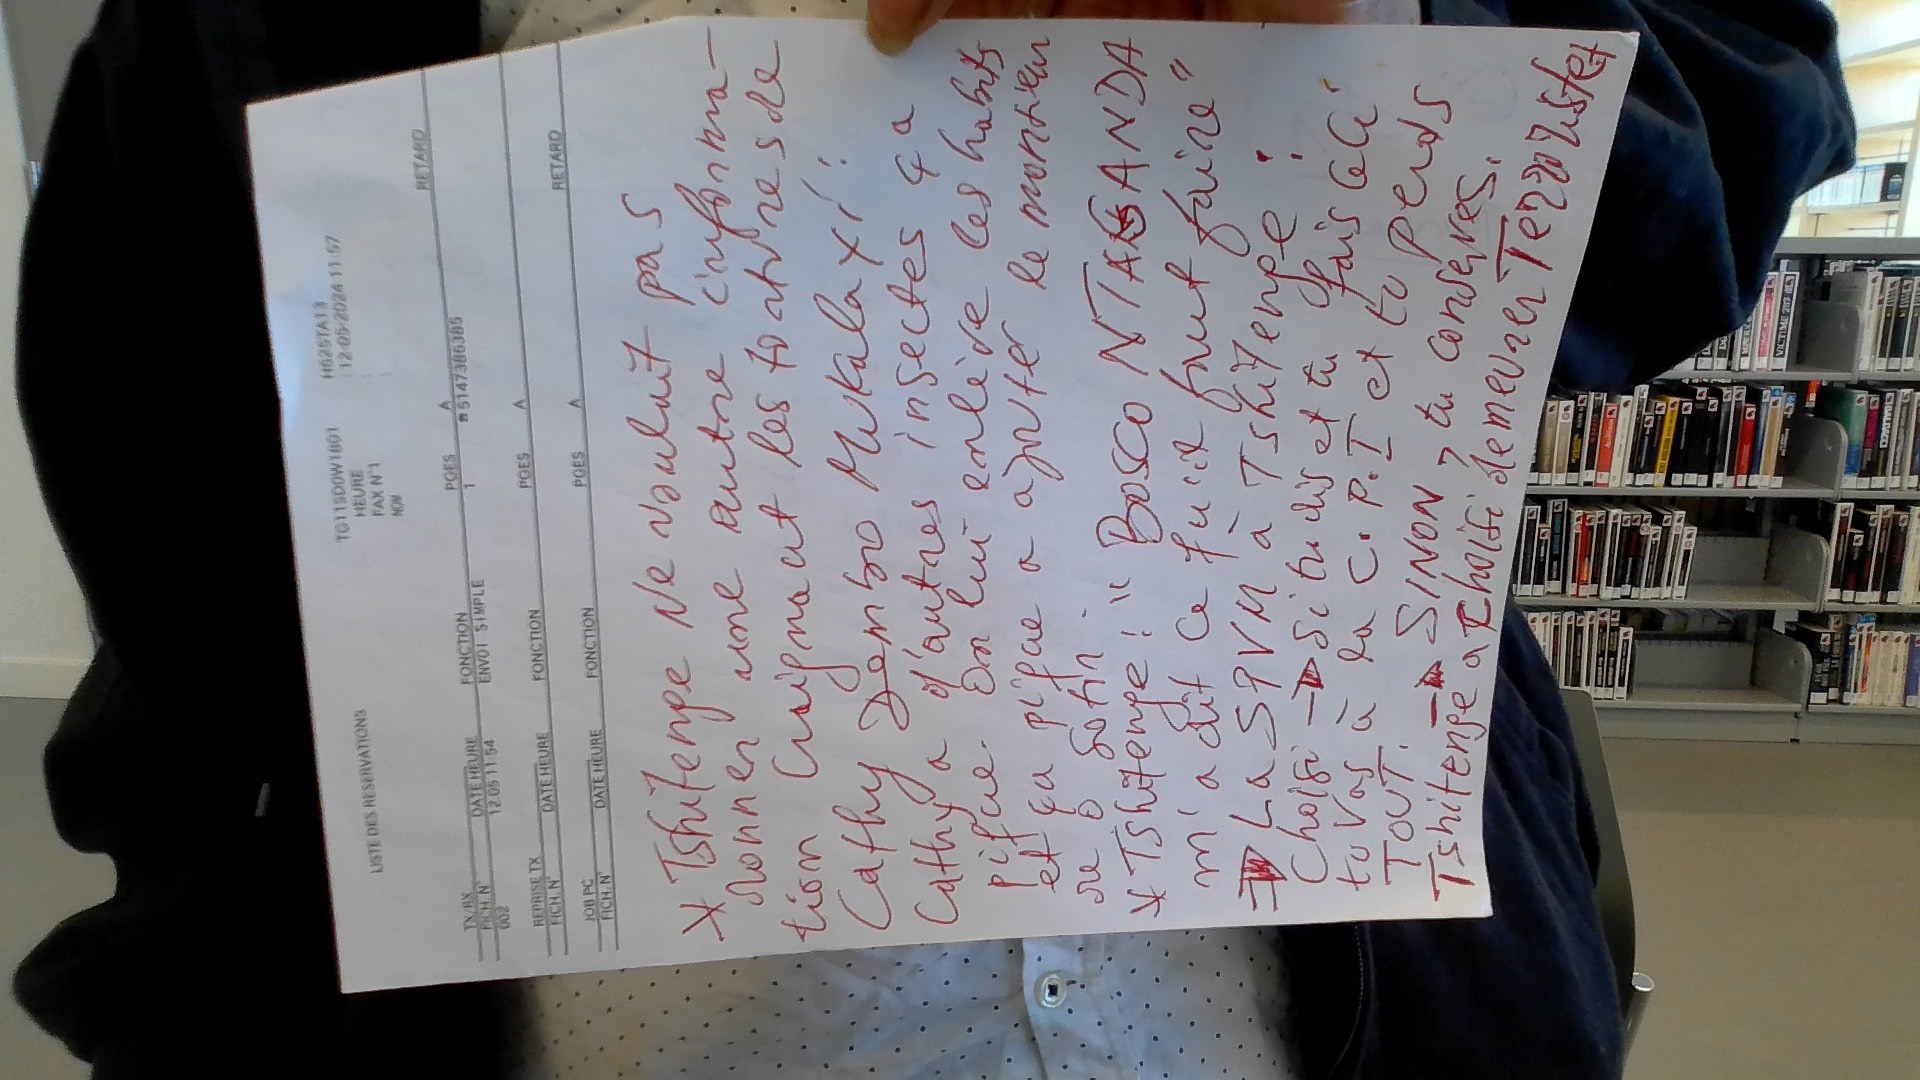 LISTE DES RESERVATIONS
TG115DOW1801
HEURE
FAX N°1
NOM
H625TAT3
12-05-2024 11:57
TX/RX
FICH. N° DATE HEURE FONCTION PGES A RETARD
002 12.05 11:54 ENVOI SIMPLE 1 ☎5147386385
REPRISE TX
FICH. N° DATE HEURE FONCTION PGES A
JOB PC
FICH. N° DATE HEURE FONCTION PGES A RETARD
* Tshitenge Ne voulait pas
donner une autre informa-
tion craignant les tortures de
Cathy Dembo Mukalaxi!
Cathy a d'autres insectes q a
pique. On lui enlève les habits
et ça pique a ajouter le monsieur
de Sotri."
* Tshitenge: " BOSCO NTAGANDA
m'a dit ce fuit faut faire"
⇒ La SPVM à Tshitenge!
Choisi → Si tu dis et tu fais ceci
to vas à la C.P.I et to perds
TOUT. → SINON, tu conserves.
Tshitenge a choisi demeurer Terroriste